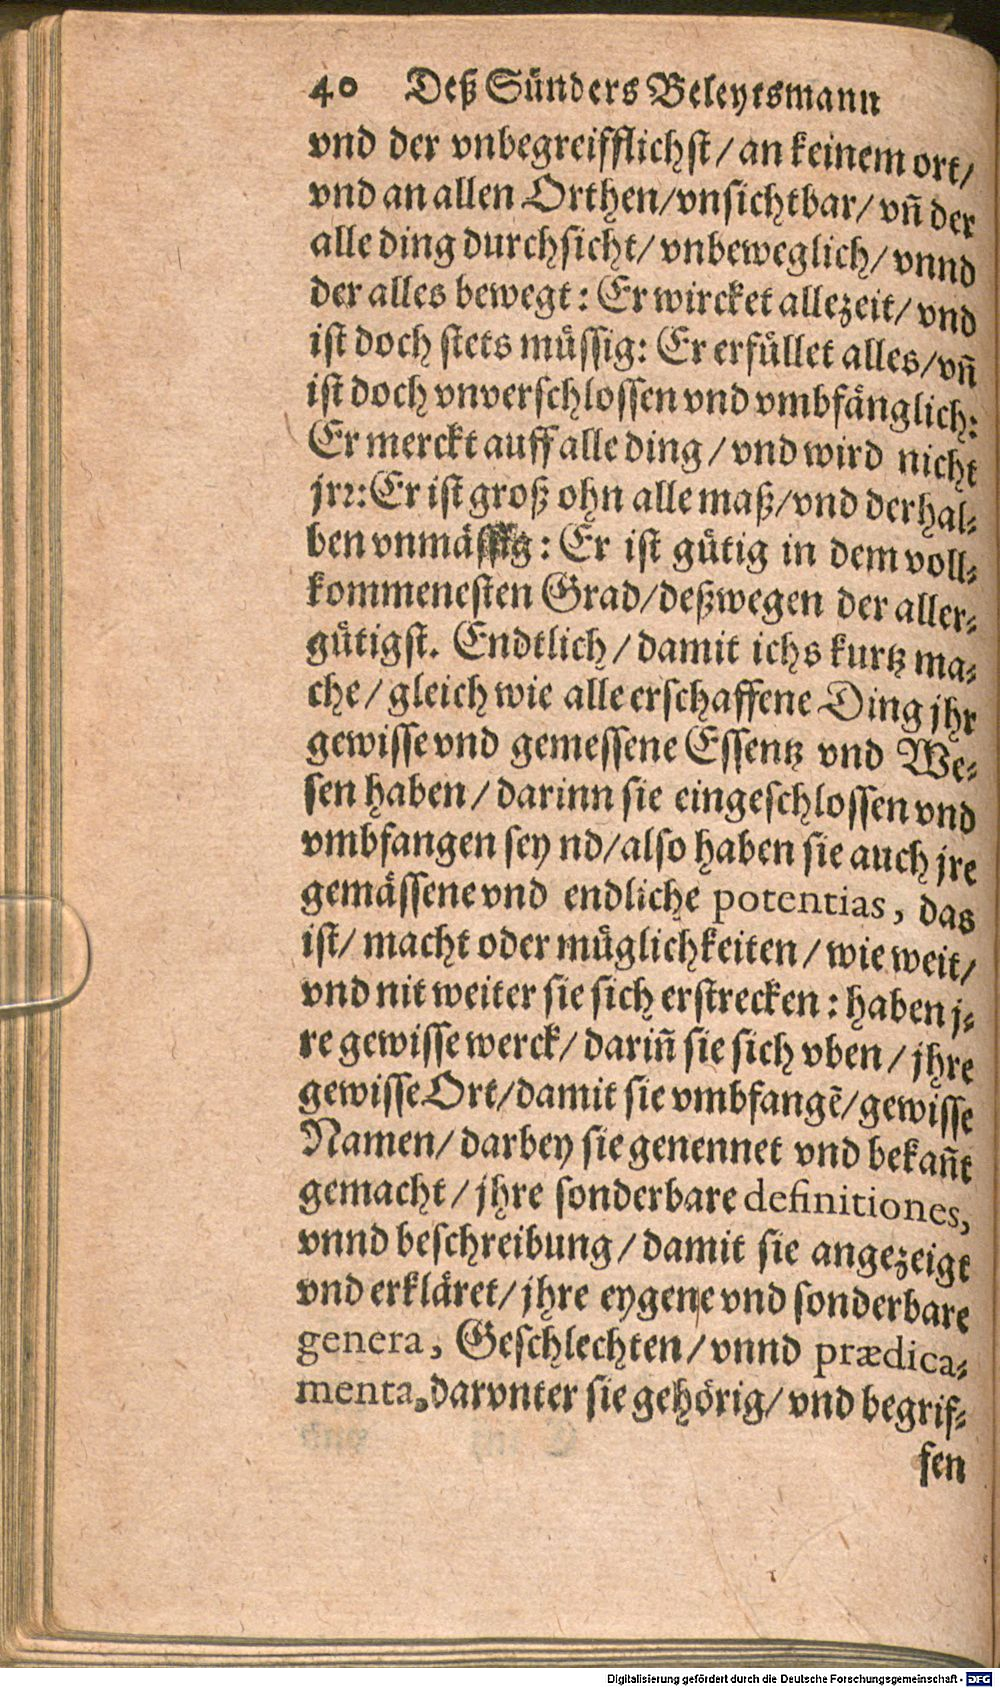 40 Deß Sünders Beleytsmann
vnd der vnbegreifflichst/ an keinem ort/
vnd an allen Orthen/ vnsichtbar/ vñ der
alle ding durchsicht/ vnbeweglich/ vnnd
der alles bewegt: Er wircket allezeit/ vnd
ist doch stets müssig: Er erfüllet alles/ vñ
ist doch vnverschlossen vnd vmbfänglich:
Er merckt auff alle ding/ vnd wird nicht
jrꝛ: Er ist groß ohn alle maß/ vnd derhal-
ben vnmässig: Er ist gütig in dem voll-
kommenesten Grad/ deßwegen der aller-
gütigst. Endtlich/ damit ichs kurtz ma-
che/ gleich wie alle erschaffene Ding jhr
gewisse vnd gemessene Essentz vnd We-
sen haben/ darinn sie eingeschlossen vnd
vmbfangen sey nd/ also haben sie auch jre
gemässene vnd endliche potentias, das
ist/ macht oder müglichkeiten/ wie weit/
vnd nit weiter sie sich erstrecken: haben j-
re gewisse werck/ dariñ sie sich vben/ jhre
gewisse Ort/ damit sie vmbfangẽ/ gewisse
Namen/ darbey sie genennet vnd bekañt
gemacht/ jhre sonderbare definitiones,
vnnd beschreibung/ damit sie angezeigt
vnd erkläret/ jhre eygene vnd sonderbare
genera, Geschlechten/ vnnd prædica-
menta, darvnter sie gehörig/ vnd begrif-
fen
Digitalisierung gefördert durch die Deutsche Forschungsgemeinschaft - DFG